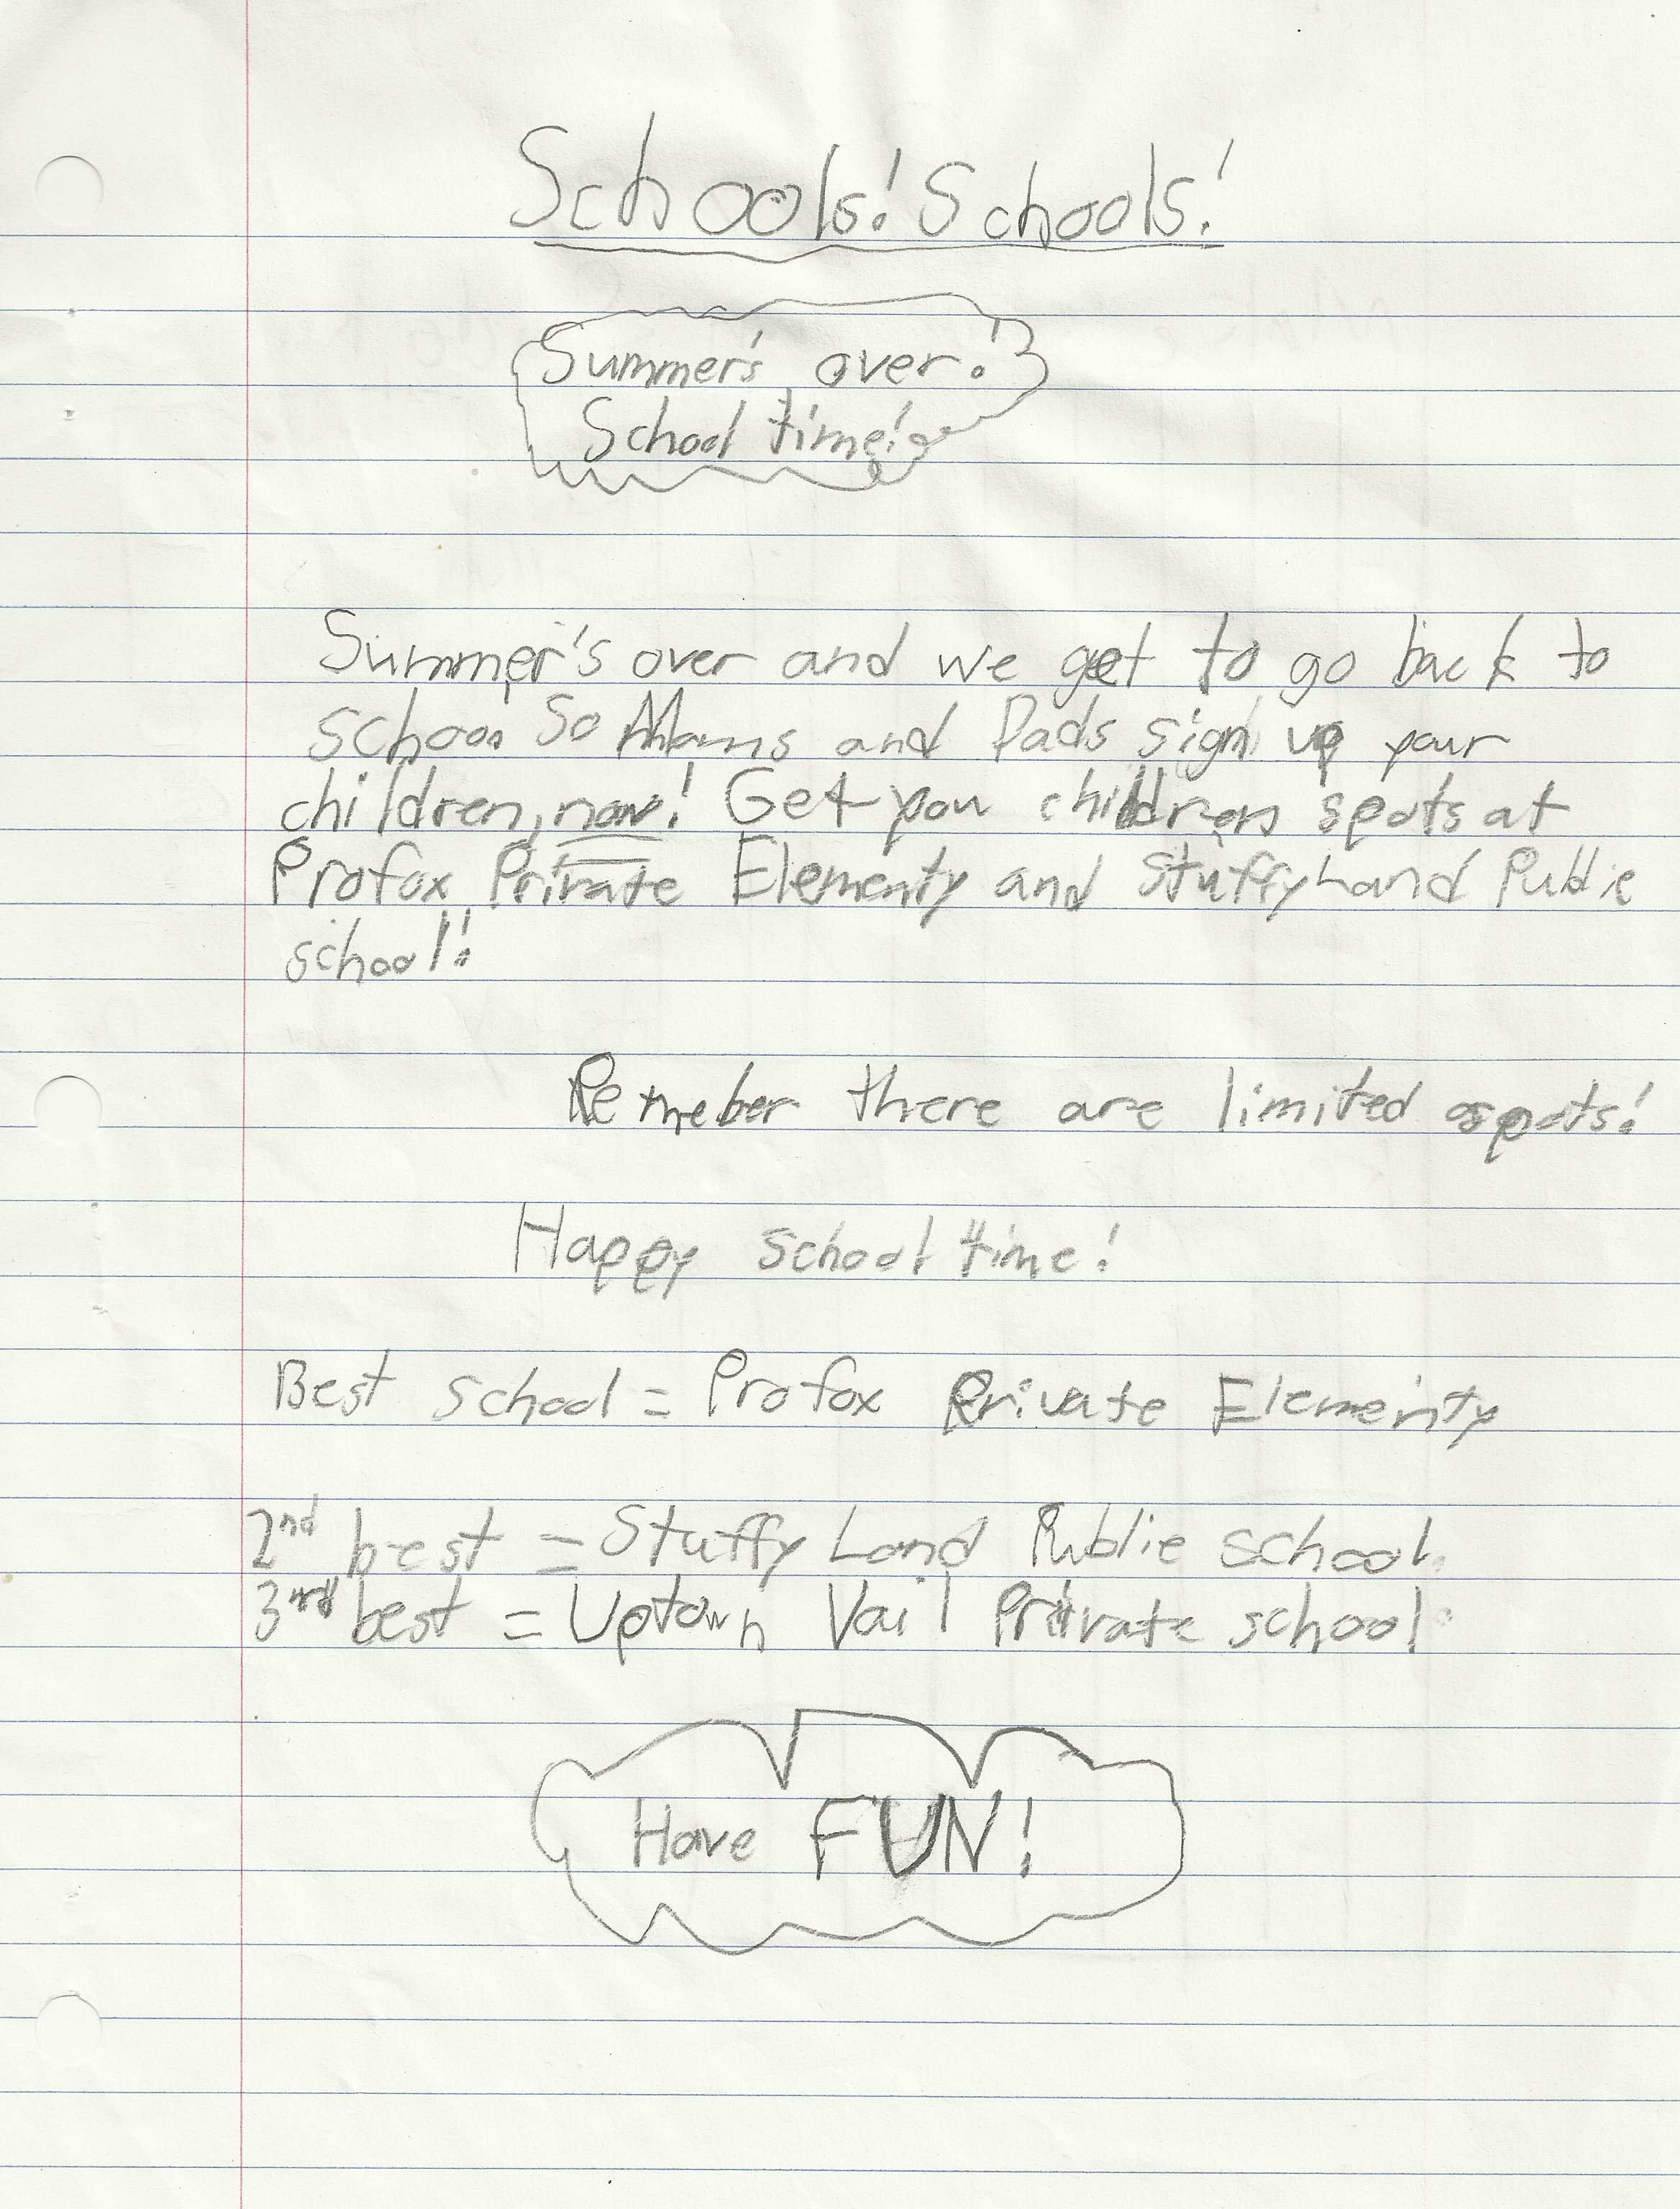 Schools! Schools!
Summer's over!
School time!
Summer's over and we get to go back to
school So Moms and Dads sign up your
children, now! Get you children spots at
Profox Private Elementy and Stuffy Land Public
school!!
Remeber there are limited spots!
Happy school time!
Best school = Profox Private Elementy
2nd best = Stuffy Land Public school.
3rd best = Uptown Vail Private school.
Have FUN!